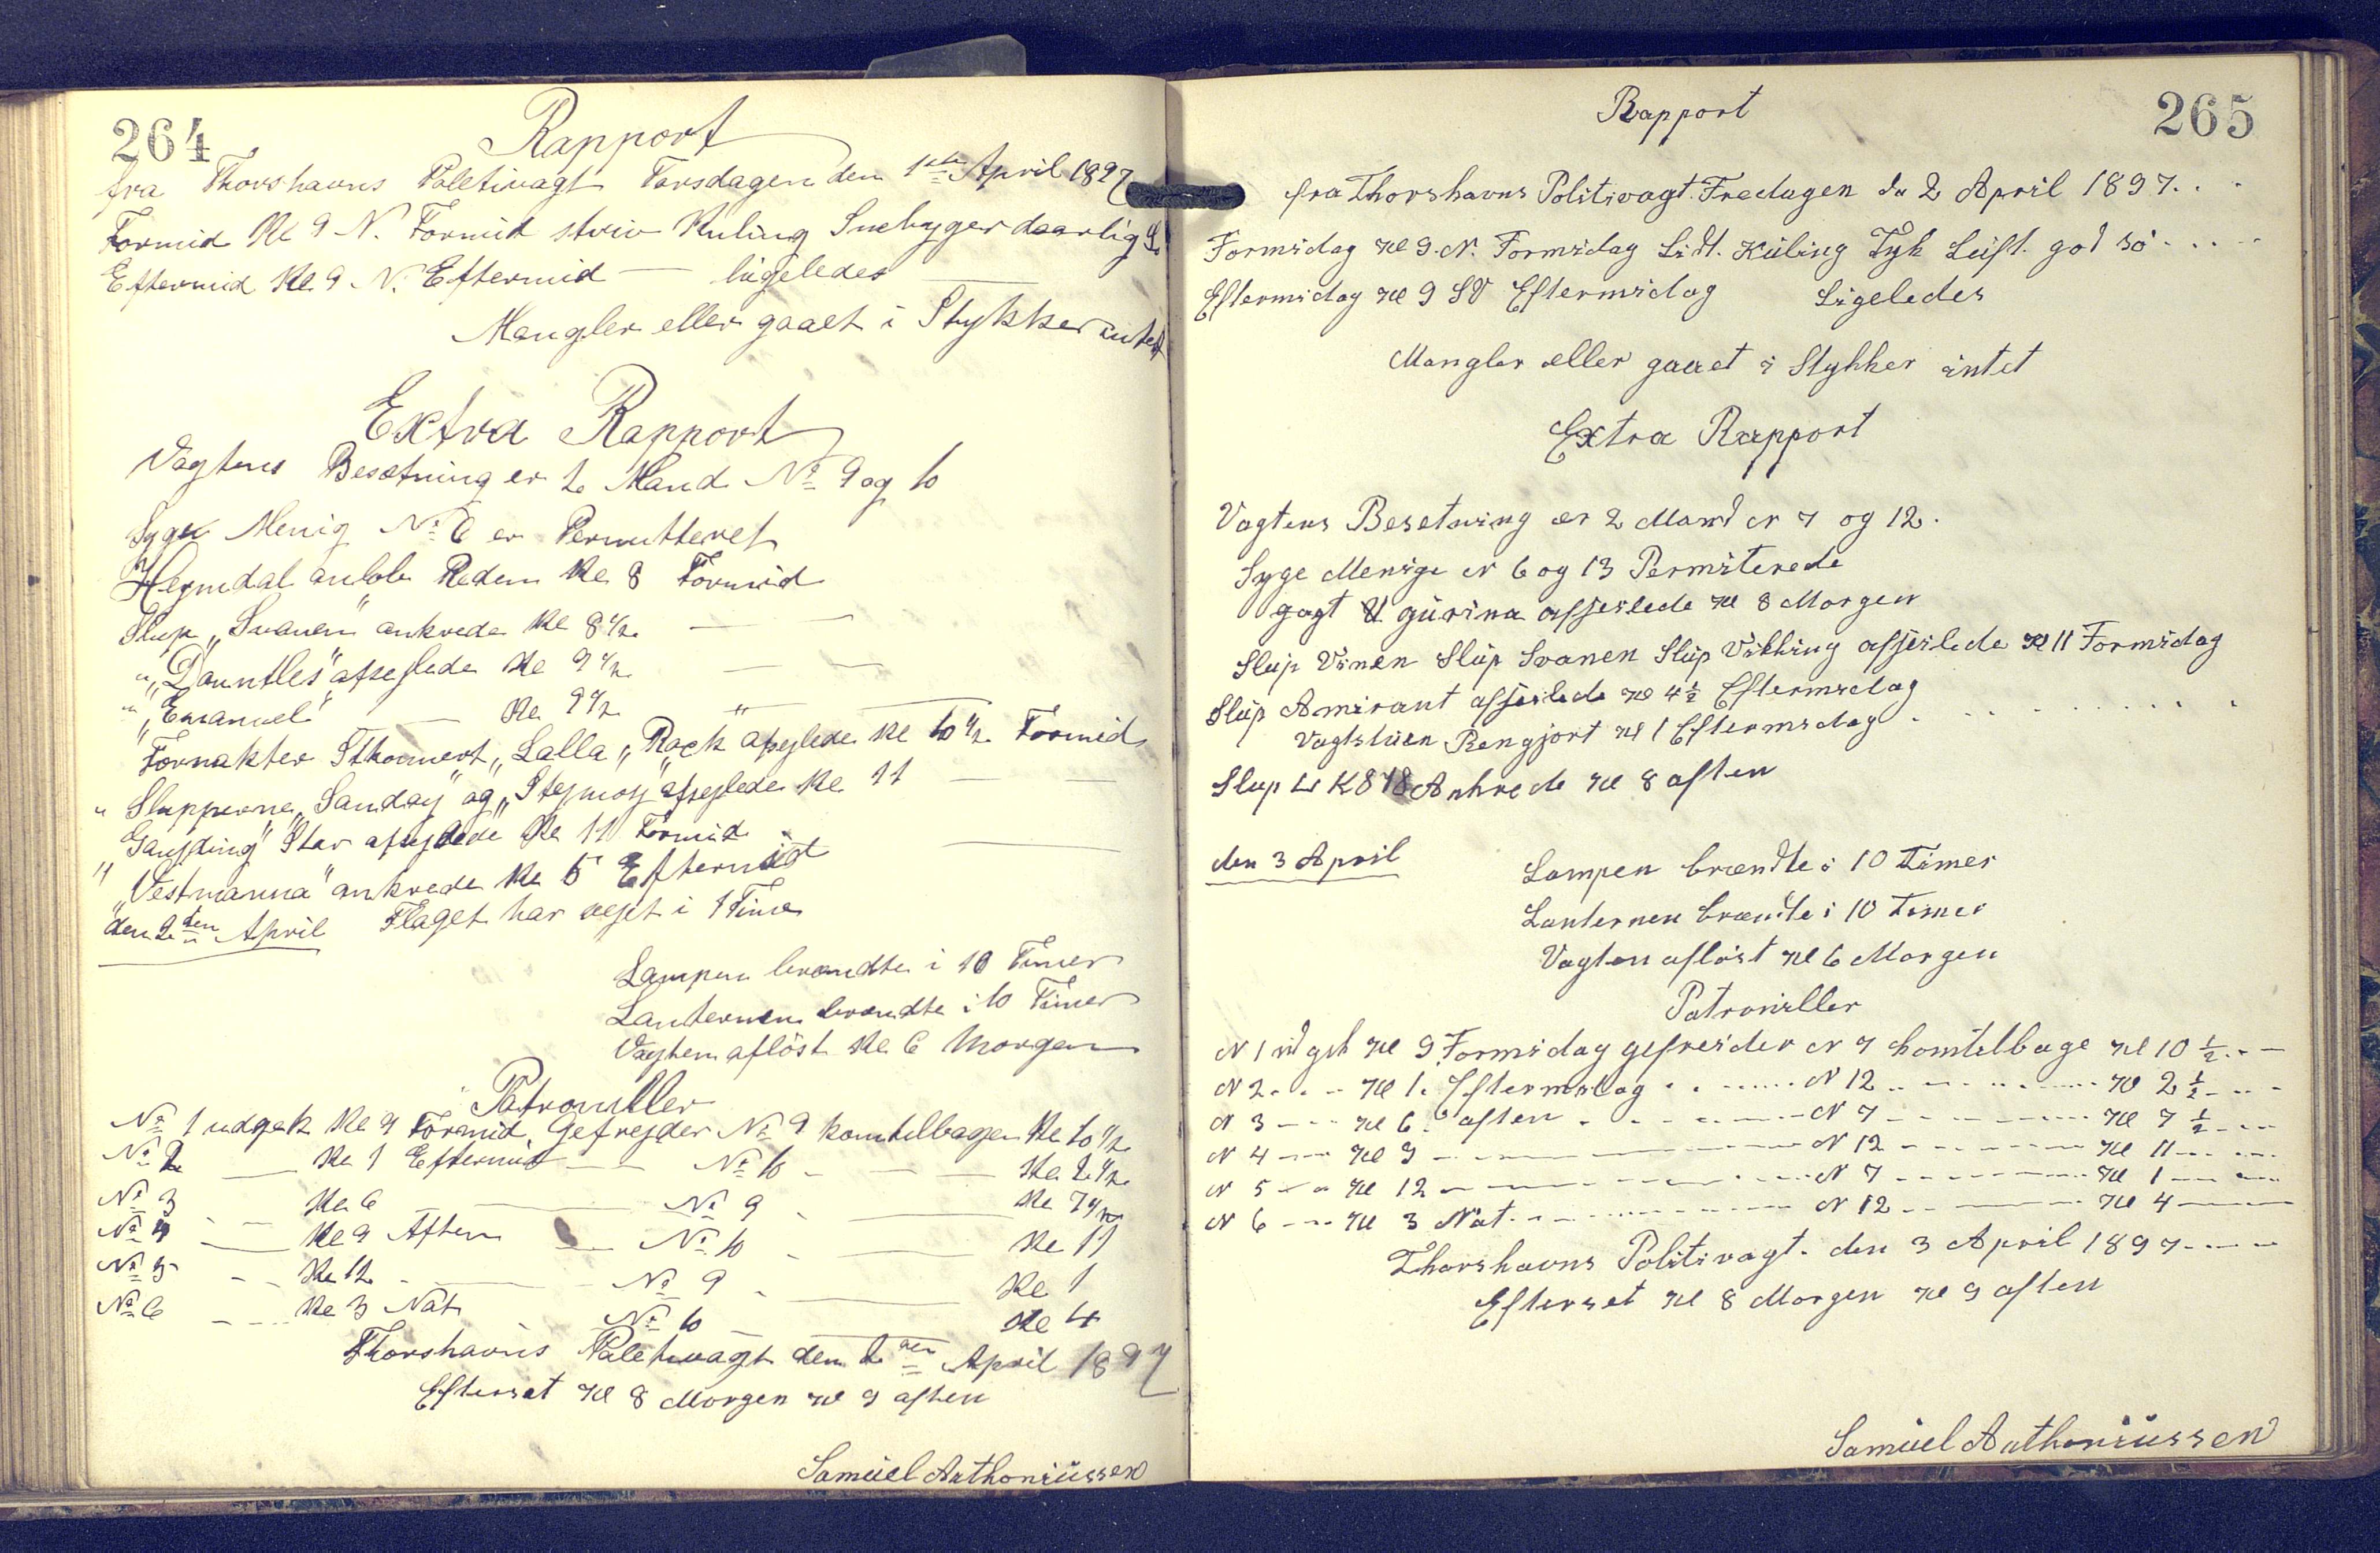 264
Rapport
fra Thorshavns Politivagt Torsdagen den 1ste April 1897
Formid Kl 9 N. Formid striv Kuling Snebyger daarlig
Eftermid Kl 9 N. Eftermid — ligeledes —
Mangler eller gaaet i Stykker intet
Extra Rapport
Vagtens Besætning er 2 Mand No 9 og 10
Syge Menig No 6 er Permitteret
Hejmdal anlob Reden Kl 8 Formid
Slup „Svanen" ankrede Kl 8 1/2 — —
" „Dauntles" afsejlede Kl 9 1/2 — —
" „Emanuel" — Kl 9 1/2 " —
Kl 10 1/2 Formid
" Slupperne „Sanday" og afsejlede Kl 11 — —
Star afsejlede Kl 11 Formid
" „Vestmanna" ankrede Kl 5 Eftermid —
den 2den April Flaget har vejet i 1 Time
Lampen brændte i 10 Timer
Lanternen brændte i 10 Timer
Vagten aflöst Kl 6 Morgen
Patrouller
No 1 udgek Kl 9 Formid. Gefrejder No 9 komtilbage Kl 10 1/2
No 2 — Kl 1 Eftermid — No 10 — Kl 2 1/2
No 3 — Kl 6 — No 9 — Kl 7 1/2
No 4 — Kl 9 Aften — No 10 — Kl 11
No 5 — Kl 12 — No 9 — Kl 1
No 6 — Kl 3 Nat No 10 — Kl 4
Thorshavns Politivagt den 2den April 1897
Efterset Kl 8 Morgen Kl 9 aften
Samüel Anthoniüssen
265
Rapport
fra Thorshavns Politivagt Fredagen d 2 April 1897. . .
Formidag Kl 9. N. Formidag Lidt. Küling Tyk Lüft. god Sö . . . .
Eftermidag Kl 9 SV Eftermidag Ligeledes
Mangler eller gaaet i Stykker intet
Extra Rapport
Vagtens Besetning er 2 Mand N 7 og 12.
Syge Menige N 6 og 13 Permiterede
afsejlede Kl 8 Morgen
Slup Svanen Slup Vikking afsejlede Kl 11 Formidag
Slup Amirant afsejlede Kl 4 1/2 Eftermidag
Vagtstüen Rengjort Kl 1 Eftermidag . . . . .
Slup K 878 Ankrede Kl 8 aften
den 3 April
Lampen brændte i 10 Timer
Lanternen brændte i 10 Timer
Vagten aflöst Kl 6 Morgen
Patrouiller
N 1 üdgik Kl 9 Formidag gefreider N 7 komtilbage Kl 10 1/2 . - —
N 2 . . - Kl 1. Eftermidag . . . . . N 12 . . . . . Kl 2 1/2 - . . -
N 3 - - - Kl 6. aften . . . . N 7 - - - - Kl 7 1/2 - - -
N 4 - - - Kl 9 - - - - N 12 - - - - Kl 11 - - -
N 5 - - Kl 12 - - - - N 7 - - - - Kl 1 - - -
N 6 - - - Kl 3 Nat. - - - - N 12 - - - - Kl 4 —
Thorshavns Politivagt. den 3 April 1897 - - - -
Efterset Kl 8 Morgen Kl 9 aften
Samüel Anthoniüssen